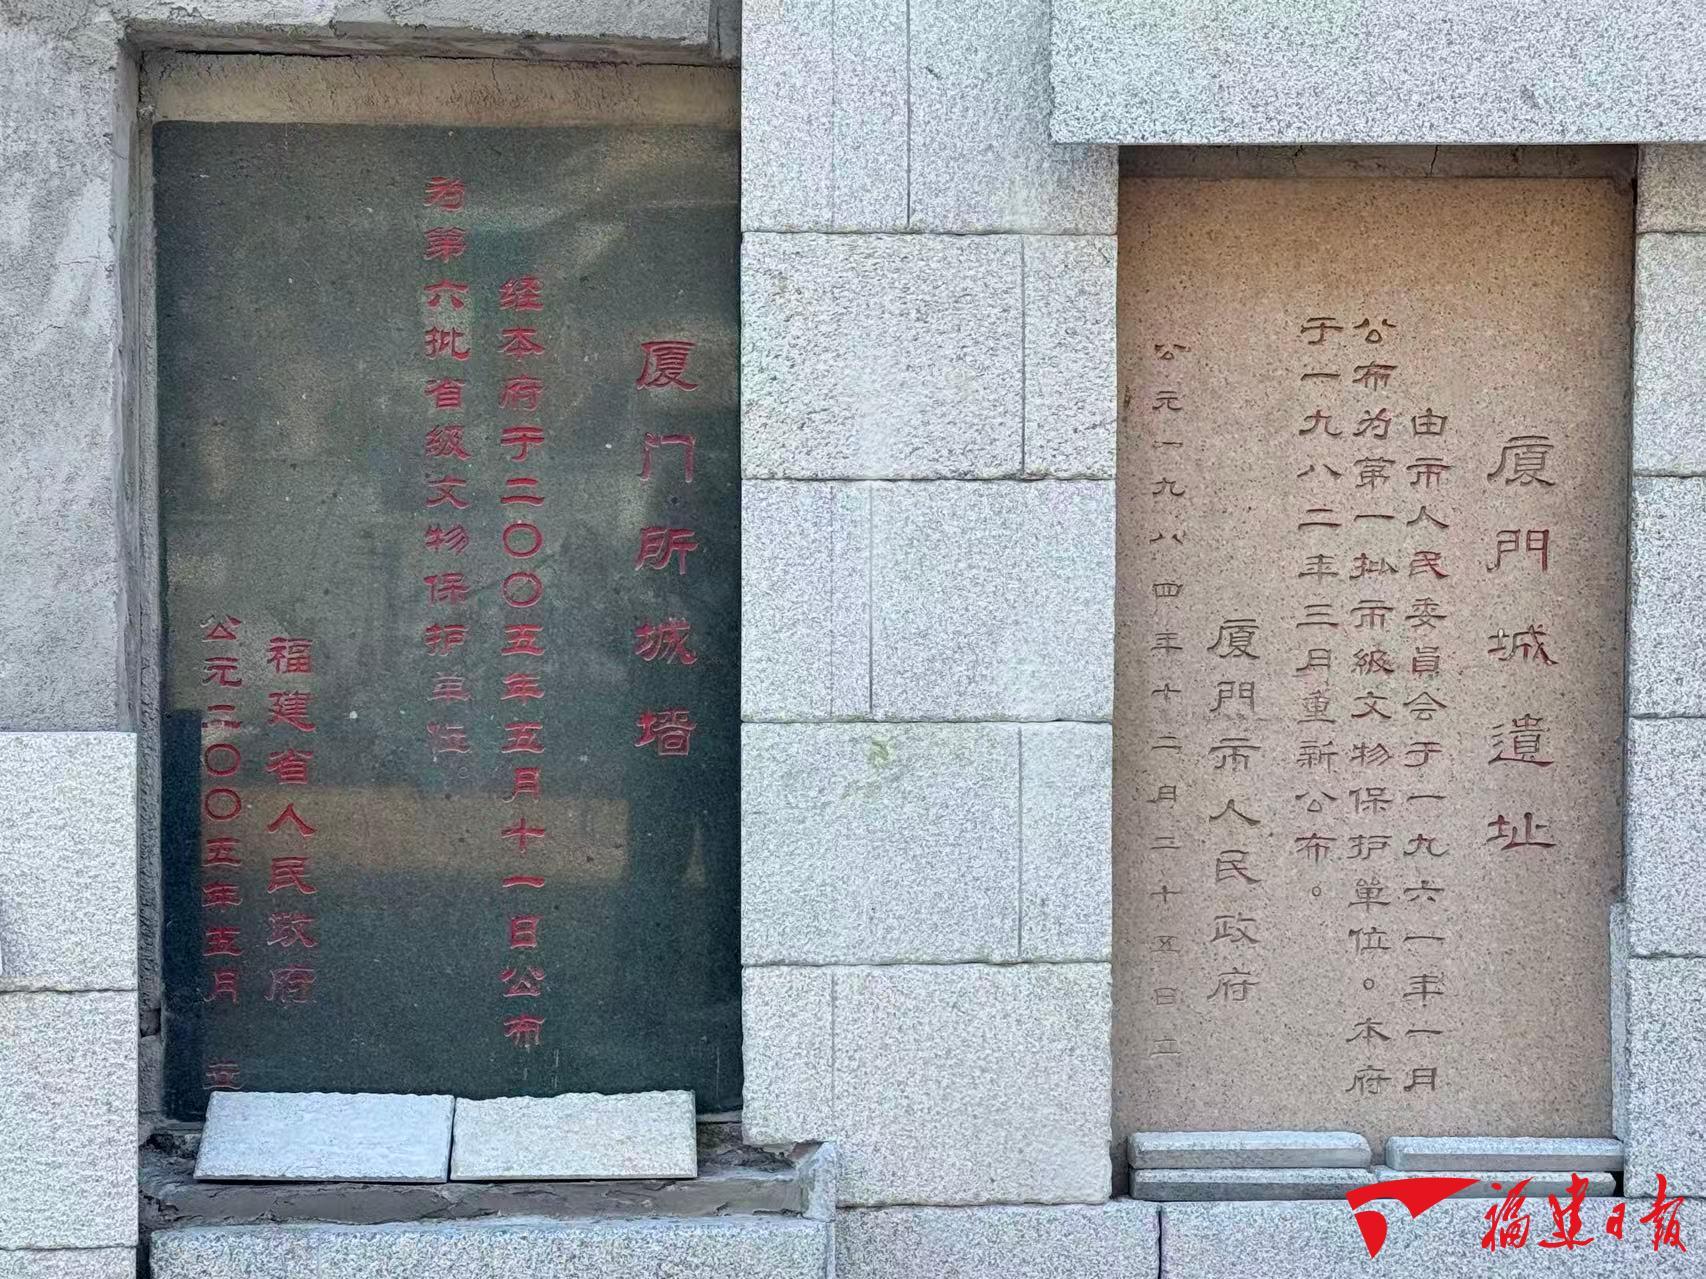 厦门所城墙
经本府于二〇〇五年五月十一日公布
为第六批省级文物保护单位。
福建省人民政府
公元二〇〇五年五月 立
厦門城遺址
由市人民委員会于一九六一年一月
公布为第一批市級文物保护單位。本府
于一九八二年三月重新公布。
厦門市人民政府
公元一九八四年十二月二十五日立
福建日报